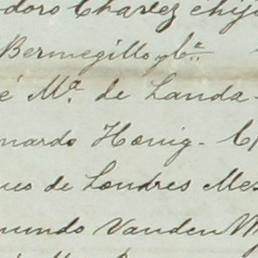 odoro Chavez é hijo
Bermejillo y Cª
é Mª de Landa
nardo Honig - C
o de Londres Mex
mundo Vanden W